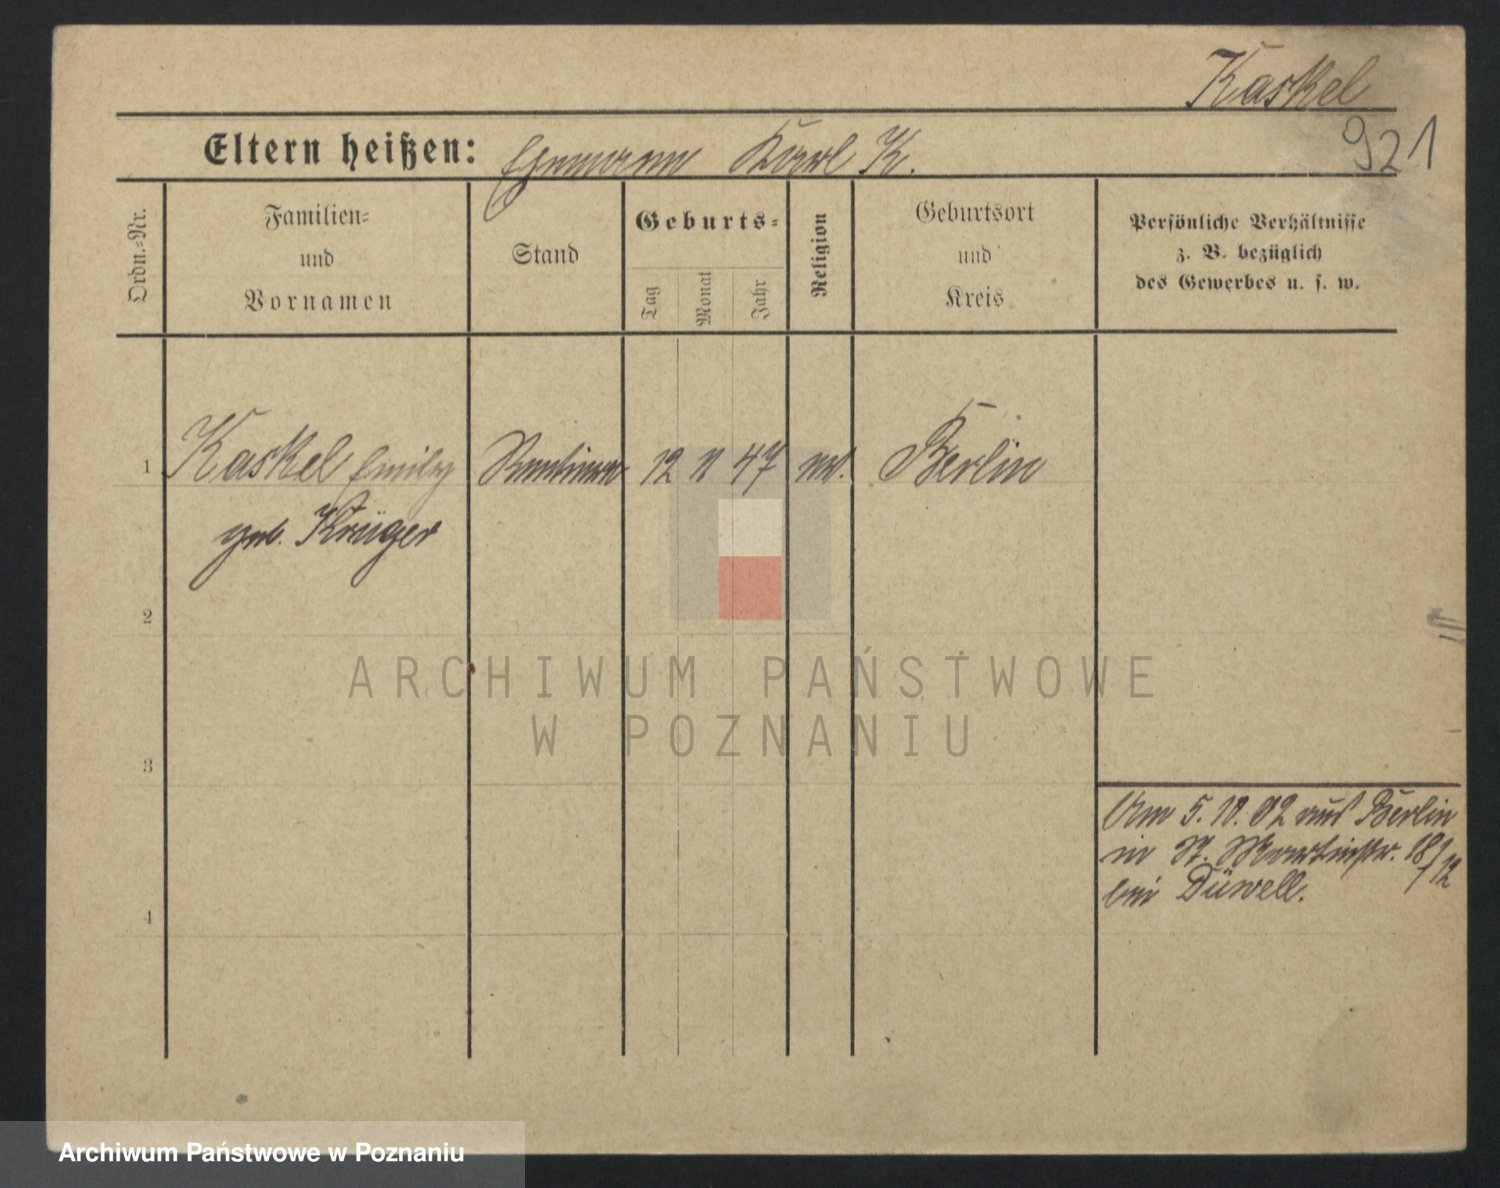 Kaskel
921
Eltern heißen: Ehemann Karl K.
Ordn.-Nr.
Familien-
und
Vornamen
Stand
Geburts-
Tag
Monat
Jahr
Religion
Geburtsort
und
Kreis
Persönliche Verhältnisse
z. B. bezüglich
des Gewerbes u. s. w.
1 Kaskel Emily Rentiere 12 11 47 Berlin
geb. Krüger
2
3
4
Am 5.10.02 aus Berlin
in St. Martinstr. 18/12
bei Düwell.
ARCHIWUM PAŃSTWOWE
W POZNANIU
Archiwum Państwowe w Poznaniu